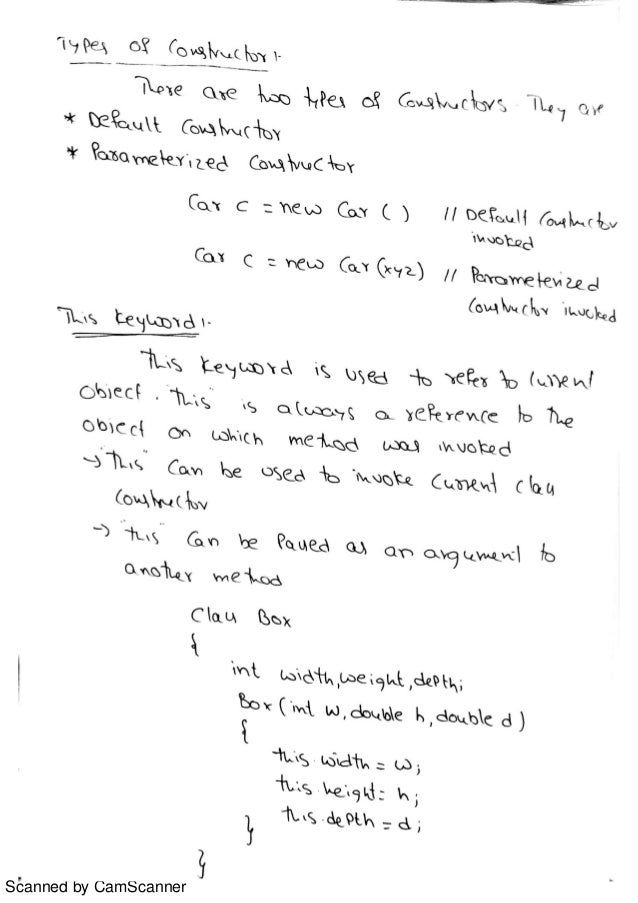 Types of Constructor:-
There are two types of Constructors. They are
* Default Constructor
* Parameterized Constructor
Car c = new Car () // Default Constructor
invoked
Car c = new Car (xyz) // Parameterized
Constructor invoked
This keyword:-
This keyword is used to refer to current
object. "this" is always a reference to the
object on which method was invoked
→ "This" can be used to invoke current class
Constructor
→ "this" can be passed as an argument to
another method
Class Box
{
int width,weight,depth;
Box (int w, double h, double d)
{
this.width = w;
this.height = h;
this.depth = d;
}
}
Scanned by CamScanner